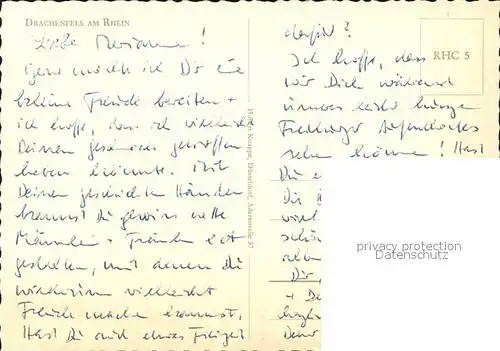 DRACHENFELS AM RHEIN
Liebe Marianne!
Gerne möchte ich Dir eine
kleine Freude bereiten +
ich hoffe, dass ich vielleicht
Deinen Geschmack getroffen
haben könnte. Mit
Deinen geschickten Händen
kannst Du gewiss nette
Männlein + Fräulein
gestalten, mit denen Du
wiederum vielleicht
Freude machen kannst.
Hast Du auch etwas Freizeit
Hugo Knuppe, Düsseldorf, Adersstraße 57
dafür?
Ich hoffe, dass
wir Dich während
unseres leider kurzen
Freiburger Aufenthaltes
sehen können! Hast
Du
Die
schön
Dir,
+ De
RHC 5
privacy protection
Datenschutz